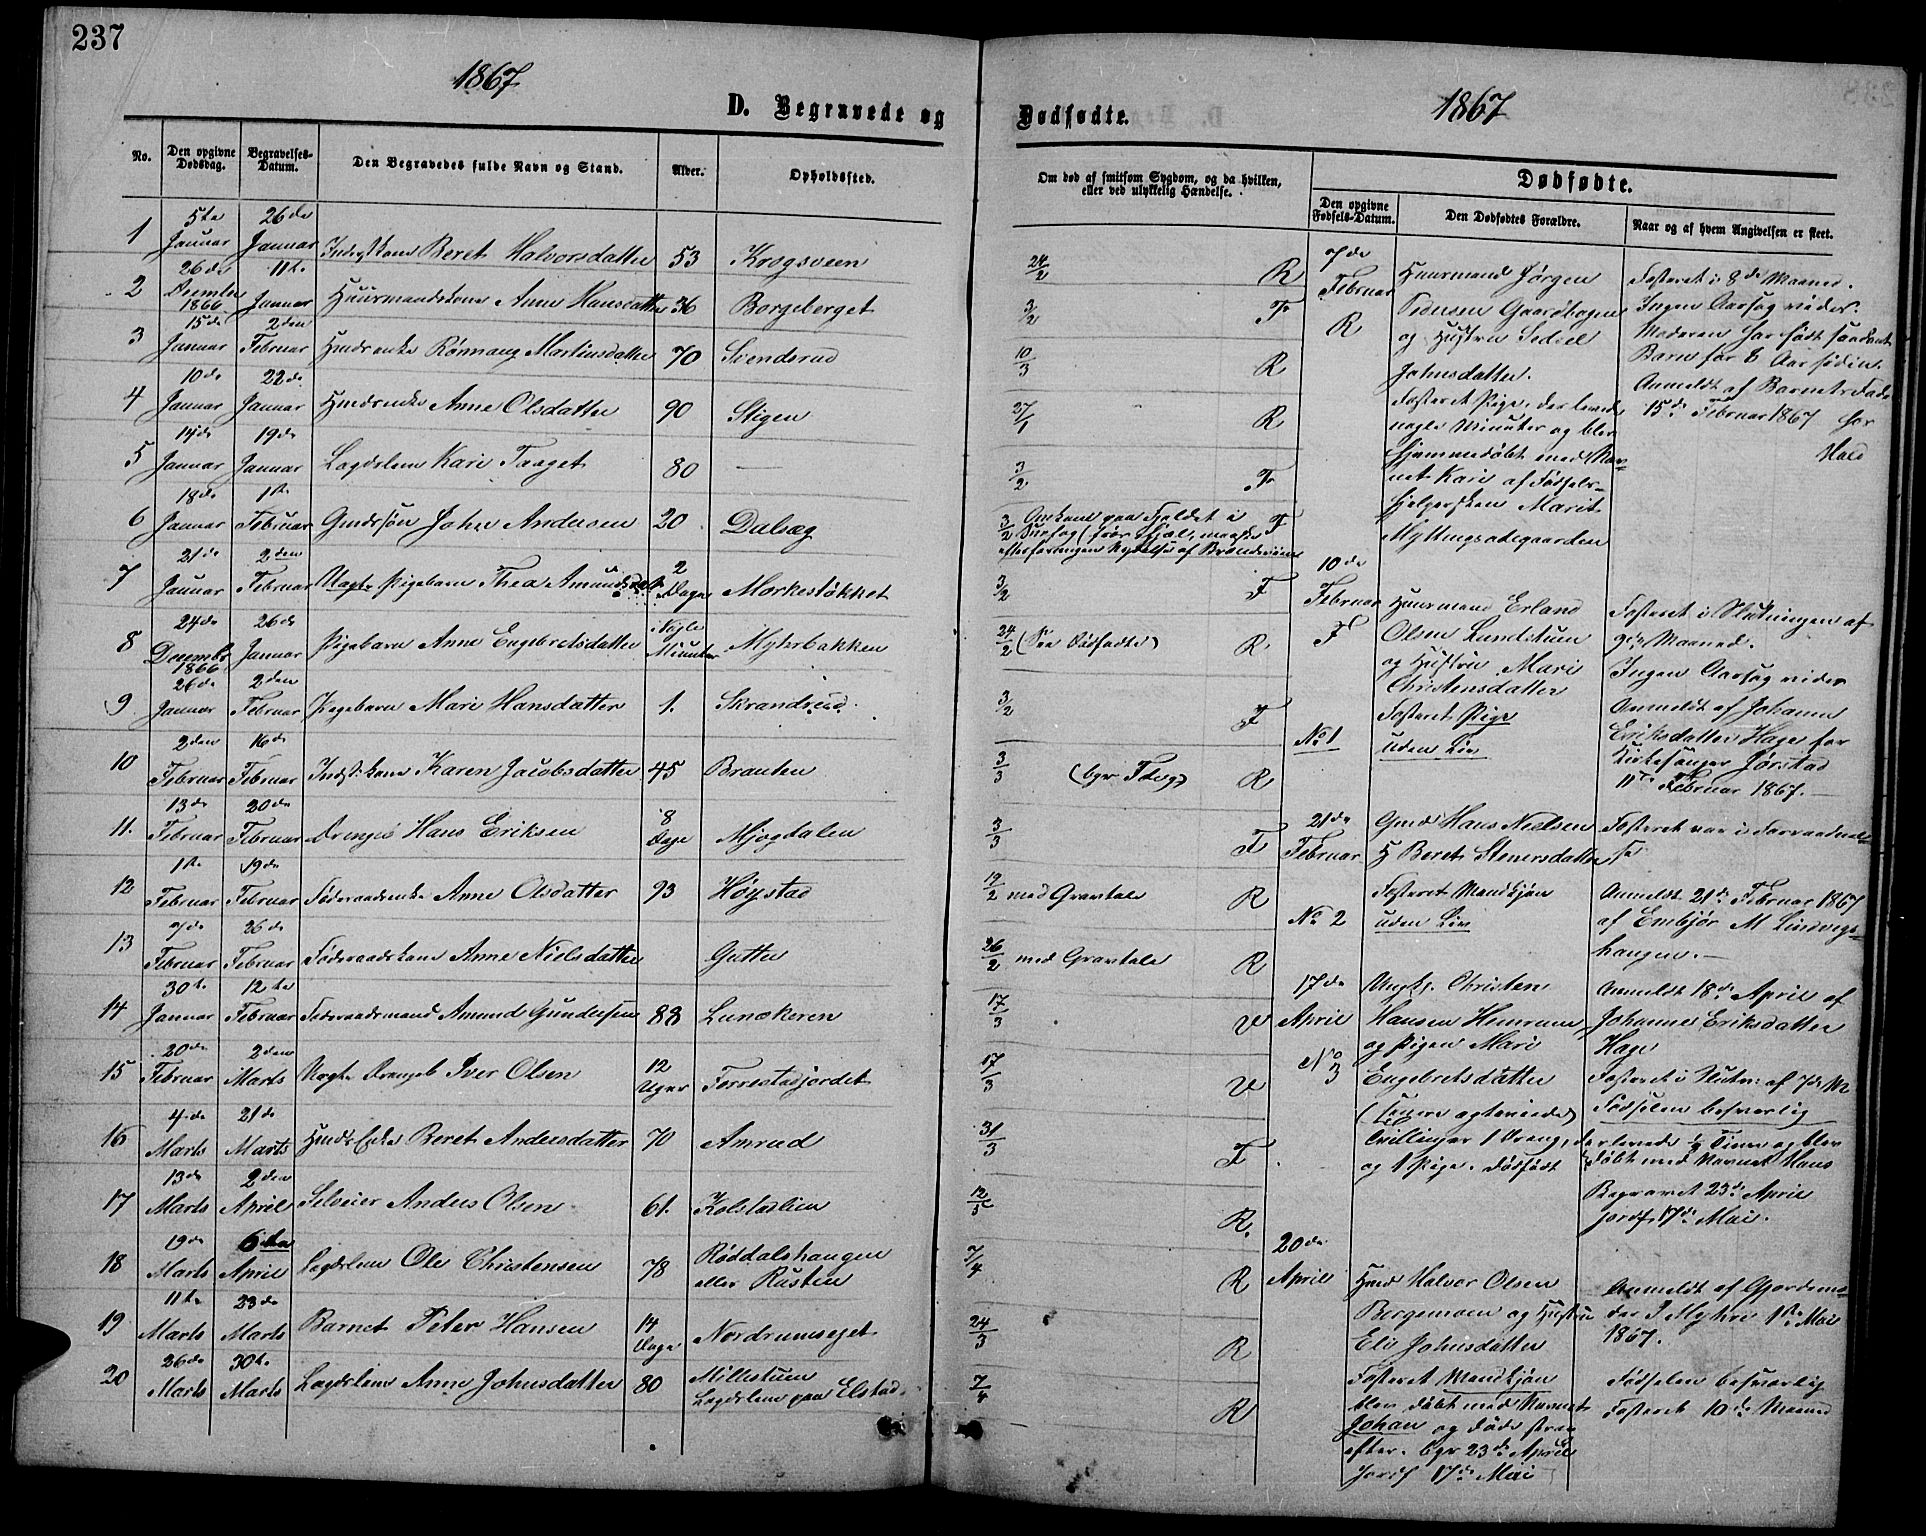 237
1867
D. Begravede og
No.
Den opgivne Dødsdag.
Begravelses-Datum.
Den Begravedes fulde Navn og Stand.
Alder.
Opholdssted.
1 5te Januar 26de Januar Beret Halvorsdatter 53 Krogsveen
2 26de Decmber 1866 11te Januar Huusmandskone Anne Hansdatter 36 Borgeberget
3 15de Januar 2den Februar Rønnaug Martinsdatter 70 Svendsrud
4 10de Januar 22de Januar Anne Olsdatter 90 Stigen
5 14de Januar 19de Januar Lægdslem Kari Taaget 80 —
6 18de Januar 1te Februar Gmdssøn Johan Andersen 20 Dalsæg
7 21de Januar 2den Februar Uægte Pigebarn Thea Amundsdatt 2 Dage Morkestøkket
8 24de Decembr 1866 26de Januar Pigebarn Anne Engebretsdatter Nogle Minuter Myhrbakken
9 26de Januar 2den Februar Pigebarn Mari Hansdatter 1. Skrandrud
10 2den Februar 16de Februar Indstkone Karen Jacobsdatter 45 Brauten
11. 13de Februar 20de Februar Drengeb Hans Eriksen 8 Dage Mjogdalen
12 1te Februar 19de Februar Føderaadsenke Anne Olsdatter 93 Høystad
13 7de Februar 26de Februar Føderaadskone Anne Nielsdatter Gutten
14 30te Januar 12te Februar Føderaadsmand Amund Gundersen 88 Lunækeren
15 20de Februar 2den Marts Uægte Drengeb Iver Olsen 12 Uger Forrestadjordet
16 4de Marts 21de Marts Hmds Enke Beret Andersdatter 70 Amrud
17 13de Marts 2den April Selveier Anders Olsen 61. Kolstadlien
18 19de Marts 6te April Lægdslem Ole Christensen 78 Røddalshaugen eller Rusten
19 11te Marts 23de Marts Barnet Peter Hansen 14 Dage Nordrumseget
20 26de Marts 30te Marts Lægdslem Anne Johnsdatter 80 Millestuen Lægdslem paa Elstad.
Dødfødte.
1867
Om død af smitsom Sygdom, og da hvilken, eller ved ulykkelig Hændelse.
Dødfødte.
Den opgivne Fødsels-Datum.
Den Dødfødtes Forældre.
Naar og af hvem Angivelsen er skeet.
24/2 R
3/2 Fr
10/3 R
27/1 R
3/2 Fr
3/2 Omkom paa Fjeldet i F
af Brændeviin
3/2 F
24/2 (See Dødfødte) R.
3/2 F
3/3 R
3/3 F
19/2 med Gravtale R
26/2 med Gravtale R
17/3 V
17/3 V
31/3 F
12/5 R.
7/4 R
24/3 R
7/4 R
7de Februar R
Huusmand Jørgen
Pedersen Gaardhagen
og Hustru Sedsel
Johnsdatter.
Fosteret Pige, der levede
nogle Minuter og blev
hjemmedøbt med Nav-
net Kari af Fødsels-
hjelpersken Marit
Myttingsødegaarden
Fosteret i 8de Maaned.
Ingen Aarsag vides.
Moderen har født saadant
Barn for 8 Aar siden.
Anmeldt af Barnets Fader
15de Februar 1867 hos
Hald
10de Februar F
No 1
Huusmand Erland
Olsen Lundstuen
og Hustru Mari
Christensdatter
Fosteret Pige
uden Liv
Fosteret i Slutningen af
9de Maaned.
Ingen Aarsag vides
Anmeldt af Johanne
Eriksdatter Hage for
Kirkesanger Jørstad
11te Februar 1867. —
21de Februar
No 2
Gmd Hans Nielsen
H Beret Stenersdatter
Fosteret Mandkjøn
uden Liv
Fosteret var i Forraadnel-
se
Anmeldt 21de Februar 1867
af Embjør M Lindvigs-
haugen. —
17de April
No 3
Ungk. Christen
Hansen Hemrum
og Pigen Mari
Engebretsdatter
Tvillinger 1 Dreng, der levede 1/2 Time og blev
og 1 Pige. Dødfødt døbt med Navnet Hans
Anmeldt 18de April af
Johanne Eriksdatter
Hage
Fosteret i Slutn: af 7de M
Fødselen besværlig
Begravet 23de April
jordf. 17de Mai.
20de April
Hmd Halvor Olsen
Bergemoen og Hustru
Eli Johnsdatter
Fosteret Mandkjøn
blev døbt med Navnet
Johan og døde strax
efter. bgr 23de April
Jordf 17de Mai
Anmeldt af Gjordemo-
der I Myhre 1te Mai
1867.
Fødselen besværlig
Fosteret 10de Maaned